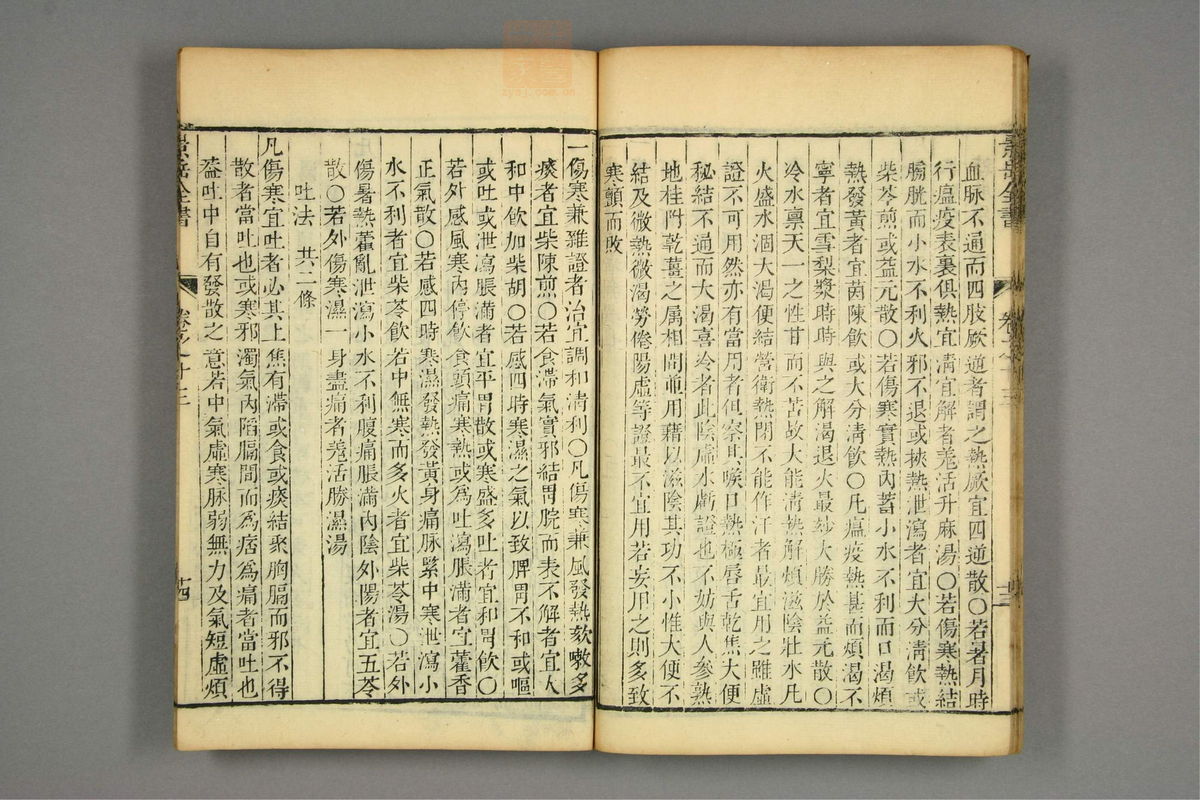 血脉不通而四肢厥逆者謂之熱厥宜四逆散○若暑月時
行瘟疫表裏俱熱宜清宜解者羗活升麻湯○若傷寒熱結
膀胱而小水不利火邪不退或挾熱泄瀉者宜大分清飲或
柴苓煎或益元散○若傷寒實熱內蓄小水不利而口渴煩
熱發黃者宜茵陳飲或大分清飲○凡瘟疫熱甚而煩渴不
寧者宜雪梨漿時時與之解渴退火最妙大勝於益元散○
冷水稟天一之性甘而不苦故大能清熱解煩滋陰壯水凡
火盛水涸大渴便結營衛熱閉不能作汗者最宜用之雖虛
證不可用然亦有當用者但察其喉口熱極唇舌乾焦大便
秘結不通而大渴喜冷者此陰虛水虧證也不妨與人參熟
地桂附乾薑之属相間並用藉以滋陰其功不小性大便不
結及微熱微渴勞倦陽虛等證最不宜用若妄用之則多致
寒顫而敗
景岳全書
卷之十三
一傷寒兼雜證者治宜調和清利○凡傷寒兼風發熱欬嗽多
痰者宜柴陳煎○若食滯氣實邪結胃脘而表不解者宜人
和中飲加柴胡○若感四時寒濕之氣以致脾胃不和或嘔
或吐或泄瀉脹滿者宜平胃散或寒盛多吐者宜和胃飲○
若外感風寒內停飲食頭痛寒熱或為吐瀉脹滿者宜藿香
正氣散○若感四時寒濕發熱發黃身痛脉緊中寒泄瀉小
水不利者宜柴苓飲若中無寒而多火者宜柴苓湯○若外
傷暑熱藿亂泄瀉小水不利腹痛脹滿內陰外陽者宜五苓
散○若外傷寒濕一身盡痛者羗活勝濕湯
吐法 共二條
凡傷寒宜吐者必其上焦有滯或食或痰結聚胸膈而邪不得
散者當吐也或寒邪濁氣內陷膈間而爲痞爲痛者當吐也
葢吐中自有發散之意若中氣虛寒脉弱無力及氣短虛煩
景岳全書
卷之十三
廿四